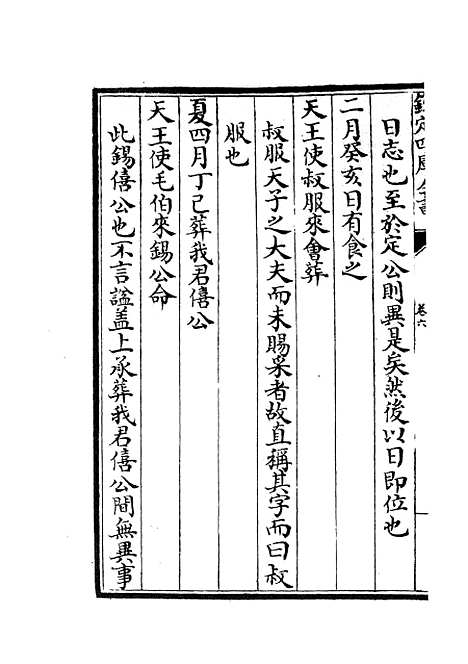 欽定四庫全書
卷六
日志也至於定公則異是矣然後以日即位也
二月癸亥日有食之
天王使叔服來會葬
叔服天子之大夫而未賜采者故直稱其字而曰叔
服也
夏四月丁已葬我君僖公
天王使毛伯來錫公命
此錫僖公也不言諡盖上承葬我君僖公間無異事